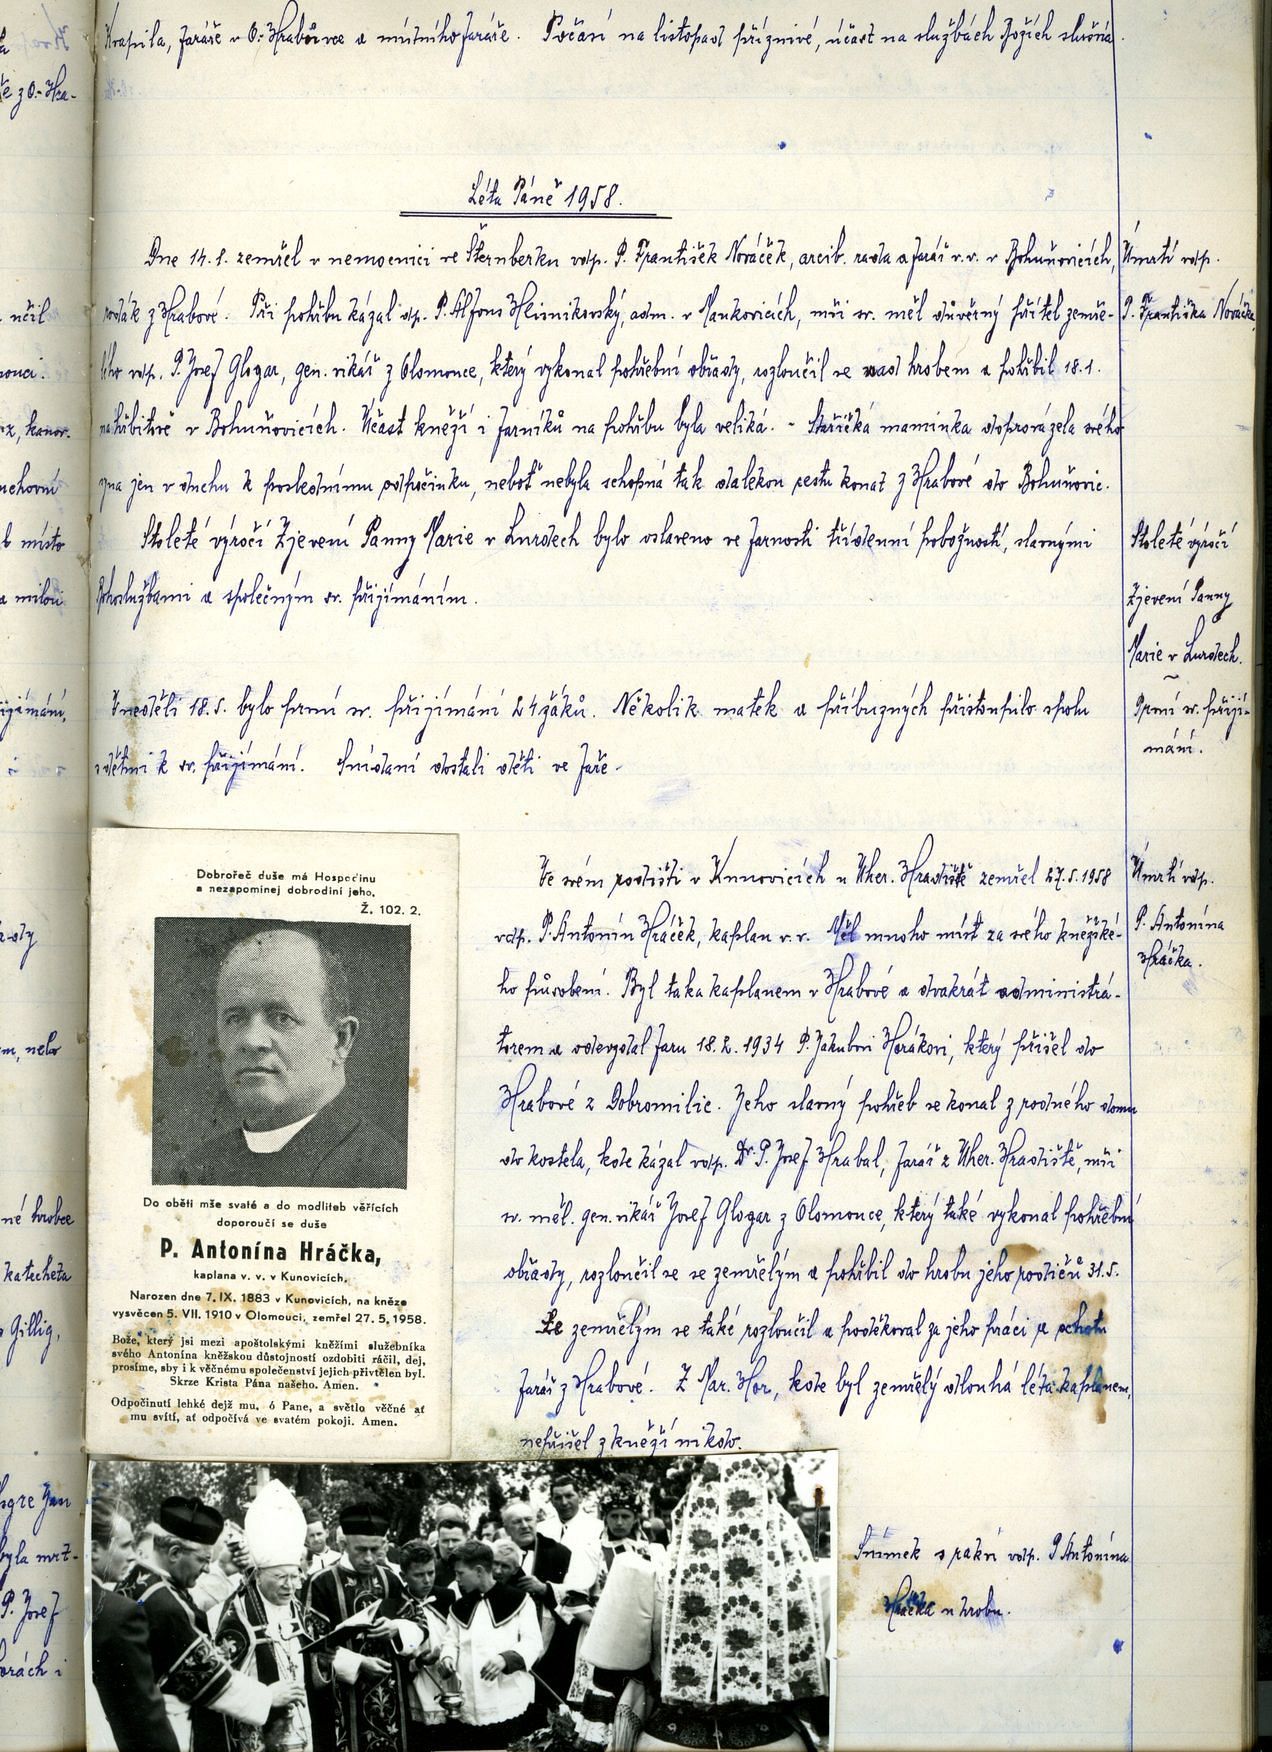 Krapila, faráře v O.-Hrabůvce a místního faráře. Počasí na listopad příznivé, účast na službách Božích slušná.
Léta Páně 1958.
Dne 14.1. zemřel v nemocnici ve Šternberku vdp. P. František Nováček, arcib. rada a farář v.v. v Bohuňovicích,
rodák z Hrabové. Při pohřbu kázal dp. P. Alfons Hlinikovský, adm. v Mankovicích, mši sv. měl důvěrný přítel zemře-
lého vdp. P. Josef Glogar, gen. vikář z Olomouce, který vykonal pohřební obřady, rozloučil se nad hrobem a pohřbil 18.1.
na hřbitově v Bohuňovicích. Účast kněží i farníků na pohřbu byla veliká. - Stařičká maminka doprovázela svého
syna jen v duchu k poslednímu odpočinku, neboť nebyla schopná tak dalekou cestu konat z Hrabové do Bohuňovic.
Stoleté výročí Zjevení Panny Marie v Lurdech bylo oslaveno ve farnosti třídenní pobožností, slavnými
bohoslužbami a společným sv. přijímáním.
V neděli 18.5. bylo první sv. přijímání 24 žáků. Několik matek a příbuzných přistoupilo spolu
s dětmi k sv. přijímání. Snídani dostali děti ve faře.
Úmrtí vdp.
P. Františka Nováčka.
Stoleté výročí
Zjevení Panny
Marie v Lurdech.
První sv. přijí-
mání.
Dobrořeč duše má Hospodinu
a nezapomínej dobrodiní jeho.
Ž. 102. 2.
Do oběti mše svaté a do modliteb věřících
doporoučí se duše
P. Antonína Hráčka,
kaplana v. v. v Kunovicích.
Narozen dne 7. IX. 1883 v Kunovicích, na kněze
vysvěcen 5. VII. 1910 v Olomouci, zemřel 27. 5. 1958.
Bože, který jsi mezi apoštolskými kněžími služebníka
svého Antonína kněžskou důstojností ozdobiti ráčil, dej,
prosíme, aby i k věčnému společenství jejich přivtělen byl.
Skrze Krista Pána našeho. Amen.
Odpočinutí lehké dejž mu, ó Pane, a světlo věčné ať
mu svítí, ať odpočívá ve svatém pokoji. Amen.
Ve svém rodišti v Kunovicích u Uher. Hradiště zemřel 27.5.1958
vdp. P. Antonín Hráček, kaplan v.v. Měl mnoho míst za svého kněžské-
ho působení. Byl taka kaplanem v Hrabové a dvakrát administrá-
torem a odevzdal faru 18.2.1934 P. Jakubovi Horákovi, který přišel do
Hrabové z Dobromilic. Jeho slavný pohřeb se konal z rodného domu
do kostela, kde kázal vdp. Dr. P. Josef Hrabal, farář z Uher. Hradiště, mši
sv. měl. gen. vikář Josef Glogar z Olomouce, který také vykonal pohřební
obřady, rozloučil se se zemřelým a pohřbil do hrobu jeho rodičů 31.5.
Se zemřelým se také rozloučil a poděkoval za jeho práci a ochotu
farář z Hrabové. Z Mar. Hor, kde byl zemřelý dlouhá léta kaplanem,
nepřišel z kněží nikdo.
Úmrtí vdp.
P. Antonína
Hráčka.
Snímek s rakví vdp. P. Antonína
Hráčka u hrobu.